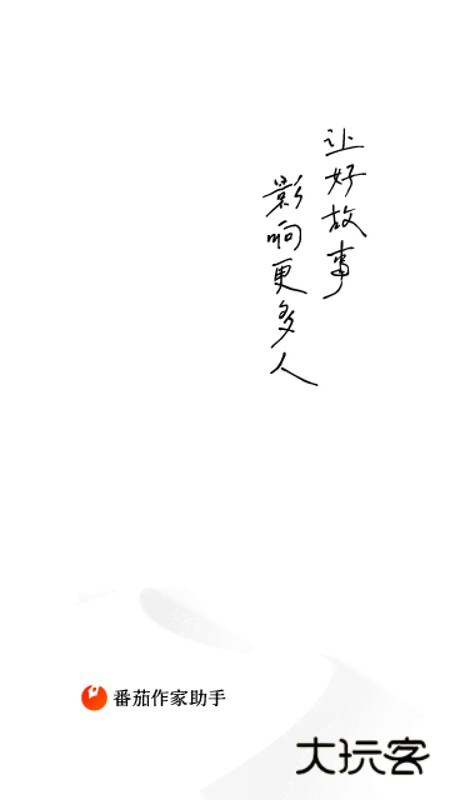 让好故事
影响更多人
番茄作家助手
大玩客